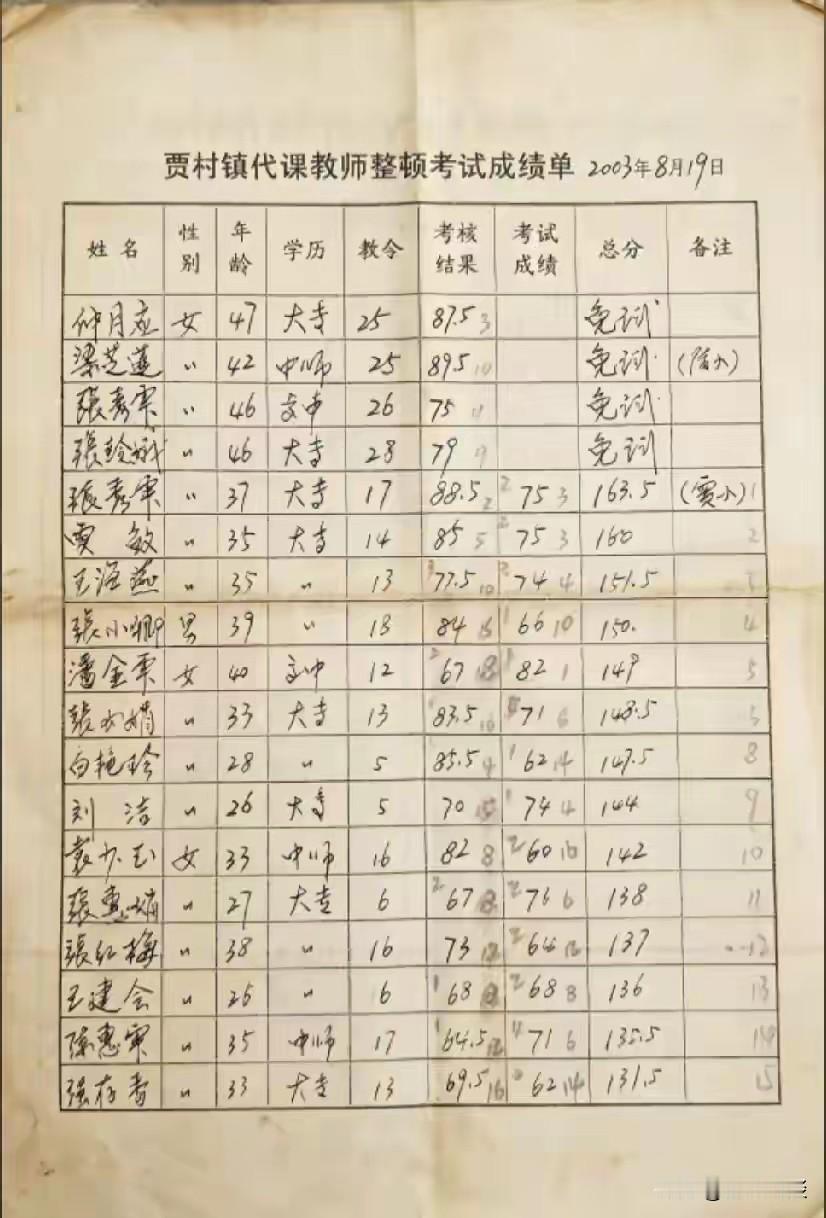 贾村镇代课教师整顿考试成绩单 2003年8月19日
姓名 性别 年龄 学历 教令 考核结果 考试成绩 总分 备注
仲月应 女 47 大专 25 87.5 3 免试
梁芝莲 〃 42 中师 25 89.5 免试
張秀 〃 46 高中 26 75 免试
張玲 〃 46 大专 28 79 9 免试
張秀 〃 37 大专 17 88.5 2 2 75 3 163.5 (贾小) 1
贾敏 〃 35 大专 14 85 5 2 75 3 160 2
王海燕 〃 35 〃 13 77.5 10 2 74 4 151.5 3
張小 男 39 〃 13 84 1 66 10 150. 4
潘金 女 40 高中 12 2 67 18 1 82 1 149 5
張 娟 〃 33 大专 13 83.5 10 71 6 148.5 5
白艳玲 〃 28 〃 5 85.5 4 1 62 14 147.5 8
刘洁 〃 26 大专 5 70 15 1 74 4 144 9
袁 玉 女 33 中师 16 82 8 2 60 16 142 10
張惠娟 〃 27 大专 6 2 67 2 71 6 138 11
張红梅 〃 38 〃 16 73 2 64 12 137 12
王建会 〃 26 〃 6 1 68 2 68 8 136 13
陈惠 〃 35 中师 17 1 64.5 71 6 135.5 14
强存香 〃 33 大专 13 69.5 16 62 14 131.5 15